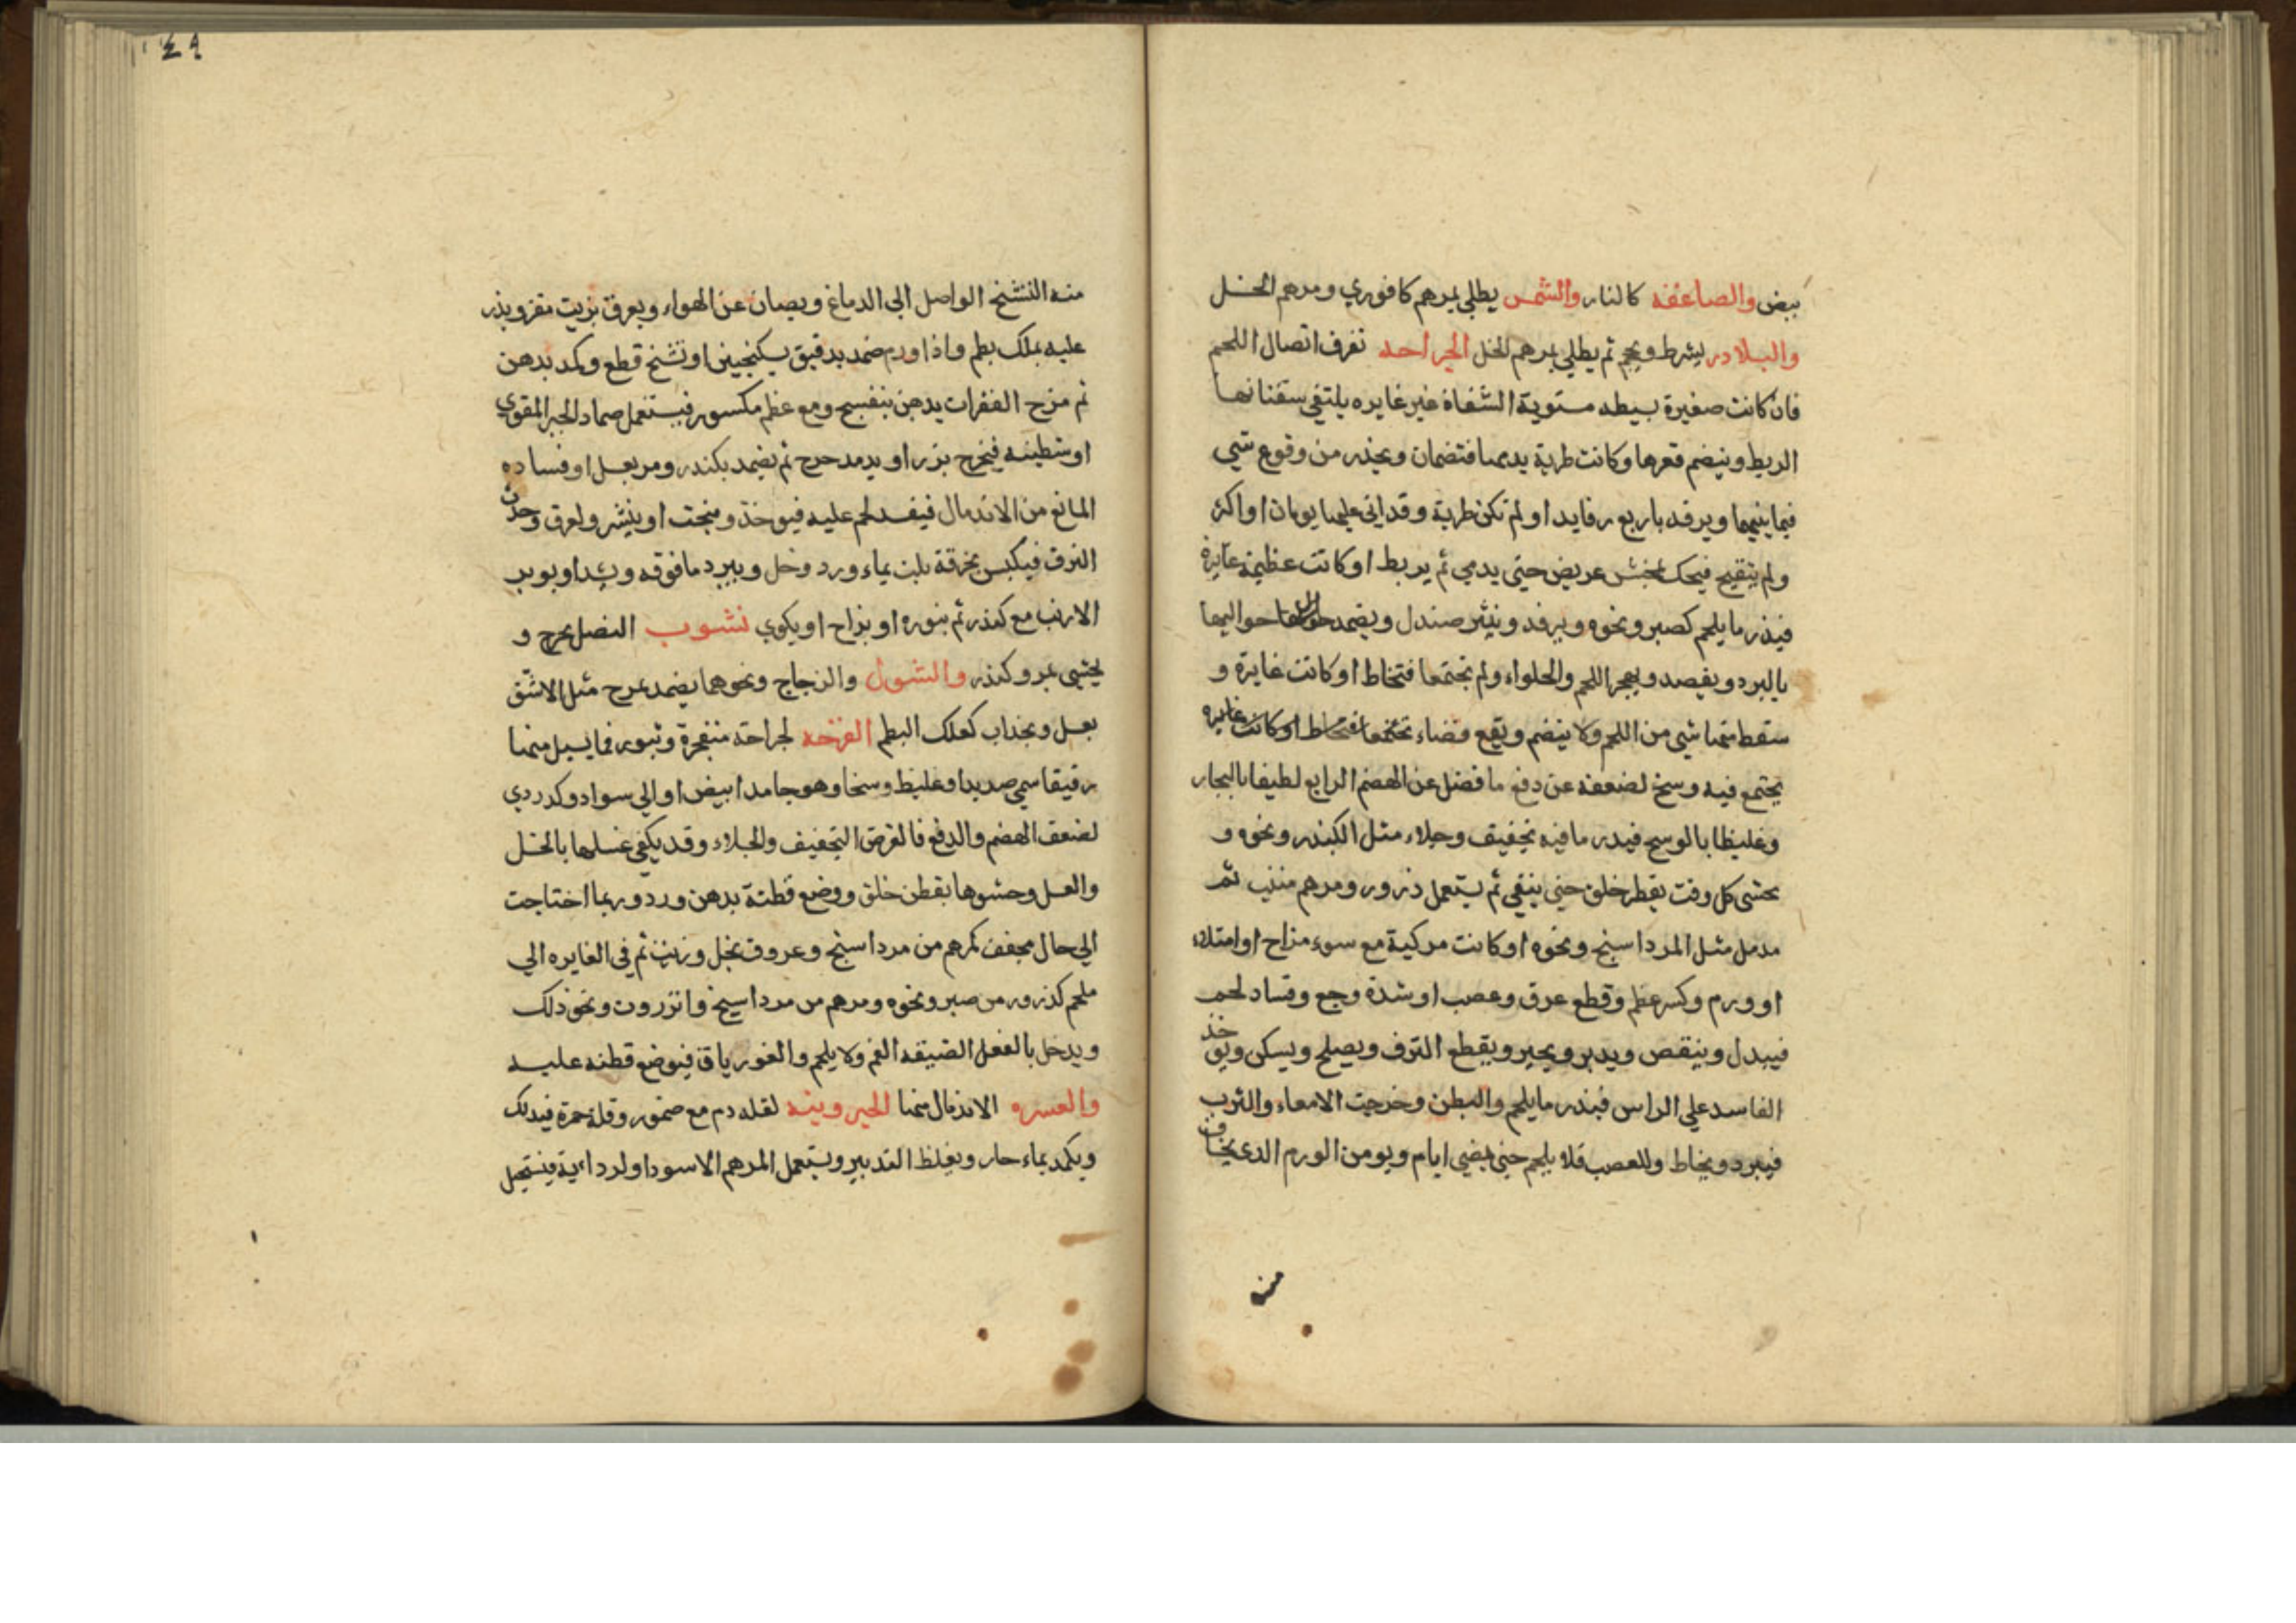 بيض والصاعقه كالنار والشمس يطلي بمرهم كافوري ومرهم الخل
والبلادر يشرط ويحجم ثم يطلي بمرهم الخل الجراحه تفرف اتصال اللحم
فان كانت صغيرة بسيطه مستوية الشفاة غير غايره يلتقي سقتانها
الربط وينضم قعرها وكانت طرية يدمىا فتضمان ويحذر من وقوع شي
فيما بينهما ويرفد باربع رفايد او لم تكن طرية وقد اتي عليها يومان او اكثر
ولم يتقيح فيحك بخشن عريض حتي يدمي ثم يربط او كانت عظيمة غايرة
فيذر ما يلحم كصبر ونحوه ويرفد وينثر صندل ويضمد حواليها
بالبرد ويفصد ويهجر اللحم والحلواء ولم تجتمعا فتخاط او كانت غايرة و
سقط منها شي من اللحم ولا ينضم ويقع فضاء
يجتمع فيه وسخ لضعفه عن دفع ما فضل عن الهضم الرابع لطيفا بالبخار
وغليظا بالوسخ فيدر ما فيه تجفيف وجلاء مثل الكندر ونحوه و
يحشي كل وقت بقطن خلق حتي ينقي ثم يستعمل ذرور ومرهم منبت ثم
مدمل مثل المرداسنج ونحوه او كانت مركبة مع سوء مزاج او امتلاء
او ورم وكسر عظم وقطع عرق وعصب او شدة وجع وفساد لحم
فيبدل وينقص ويدبر ويجبر ويقطع النزف ويصلح ويسكن ويوخذ
الفاسد علي الراس فيذر ما يلحم والبطن وخرجت الامعاء والثرب
فيبرد ويخاط والعصب فلا يلحم حتي يمضي ايام ويومن الورم الذي يخاف
من
٤٩
منه التشنج الواصل الي الدماغ ويصان عن الهواء ويعرق بزيت مفتر ويذر
عليه بملك بطم واذا ورم ضمد بدقيق بسكنجبين او تشنج قطع وكمد بدهن
ثم مزح الفقرات بدهن بنفسج ومع عظم مكسور فيستعمل ضماد الجبر المقوي
او شظيته فيخرج بزر او يدمد حرج ثم يضمد بكندر ومر بعسل او فساده
المانع من الاندمال فيفسد لحم عليه فيوخذ وينحت او ينشر ولعرق وحدث
النزف فيكبس بخرقة بلت بماء ورد وخل ويبرد ما فوقه ويشد او بوبر
الارنب مع كندر ثم بنوره او بزاج او يكوي نشوب النصل يخرج و
يحشي بمر وكندر والشوك والزجاج ونحوهما يضمد بمرخ مثل الاشق
بعسل وبجذاب كعلك البطم القرحه لجراحة متفجرة وثبور فما يسيل منها
رقيقا سمي صديدا وغليظ وسخا وهو جامد ابيض او الي سواد وكدردي
لضعف الهضم والدفع فالغرض التجفيف والجلاء وقد يكفي غسلها بالخل
والعسل وحشوها بقطن خلق ووضع قطنة بدهن ورد وربما احتاجت
الي حال مجفف كمرهم من مرداسنج وعروق بخل وزيت ثم في الغايره الي
ملحم كذرور من صبر ونحوه ومرهم من مرداسنج وانزروت ونحو ذلك
ويدخل بالفعل الضيقه الفم ولا يلحم والغور باق فيوضع قطنه عليه
والعسره الاندمال منها الخيرونيه لقله دم مع ضمور وقلة حمرة فيدلك
ويكمد بماء حار ويغلظ التدبير ويستعمل المرهم الاسود او لرداءية فيستعمل